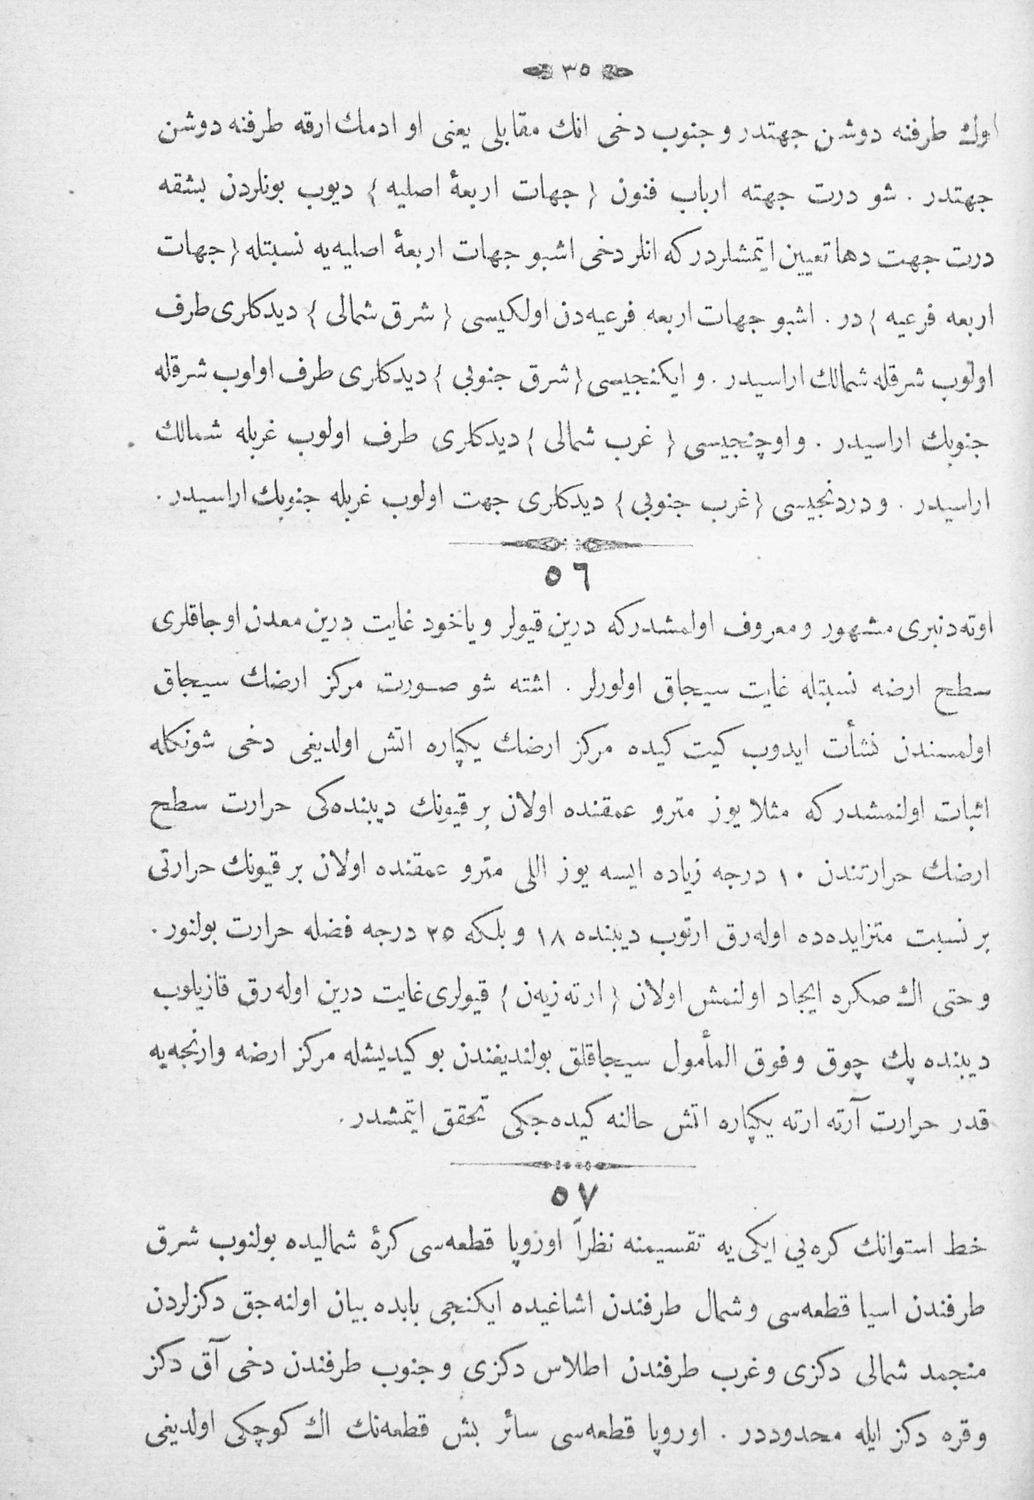 ٣٥
اوك طرفنه دوشن جهتدر و جنوب دخی انك مقابلی یعنی او ادمك ارقه طرفنه دوشن
جهتدر . شو درت جهته ارباب فنون { جهات اربعهٔ اصلیه } دیوب بونلردن بشقه
درت جهت دها تعیین ایتمشلردر که انلر دخی اشبو جهات اربعهٔ اصلیه‌یه نسبتله { جهات
اربعه فرعیه } در . اشبو جهات اربعه فرعیه‌دن اولکیسی { شرق شمالی } دیدکلری طرف
اولوب شرقله شمالك اراسیدر . و ایکنجیسی { شرق جنوبی } دیدکلری طرف اولوب شرقله
جنوبك اراسیدر . و اوچنجیسی { غرب شمالی } دیدکلری طرف اولوب غربله شمالك
اراسیدر . و دردنجیسی { غرب جنوبی } دیدکلری جهت اولوب غربله جنوبك اراسیدر .
٥٦
اوته‌دنبری مشهور و معروف اولمشدر که درین قیولر و یاخود غایت درین معدن اوجاقلری
سطح ارضه نسبتله غایت سیجاق اولورلر . اشته شو صورت مرکز ارضك سیجاق
اولمسندن نشأت ایدوب کیت کیده مرکز ارضك یکپاره اتش اولدیغی دخی شونکله
اثبات اولنمشدر که مثلا یوز مترو عمقنده اولان بر قیونك دیبنده‌کی حرارت سطح
ارضك حرارتندن ١٠ درجه زیاده ایسه یوز اللی مترو عمقنده اولان بر قیونك حرارتی
بر نسبت متزایده‌ده اوله‌رق ارتوب دیبنده ١٨ و بلکه ٢٥ درجه فضله حرارت بولنور .
و حتی اك صکره ایجاد اولنمش اولان { ارته‌زیه‌ن } قیولری غایت درین اوله‌رق قازیلوب
دیبنده پك چوق و فوق المأمول سیجاقلق بولندیغندن بو کیدیشله مرکز ارضه وارنجه‌یه
قدر حرارت آرته ارته یکپاره اتش حالنه کیده‌جکی تحقق ایتمشدر .
٥٧
خط استوانك کره‌یی ایکی‌یه تقسیمنه نظراً اوروپا قطعه‌سی کرهٔ شمالیده بولنوب شرق
طرفندن اسیا قطعه‌سی و شمال طرفندن اشاغیده ایکنجی بابده بیان اولنه‌جق دکزلردن
منجمد شمالی دکزی و غرب طرفندن اطلاس دکزی و جنوب طرفندن دخی آق دکز
و قره دکز ایله محدوددر . اوروپا قطعه‌سی سائر بش قطعه‌نك اك کوچکی اولدیغی